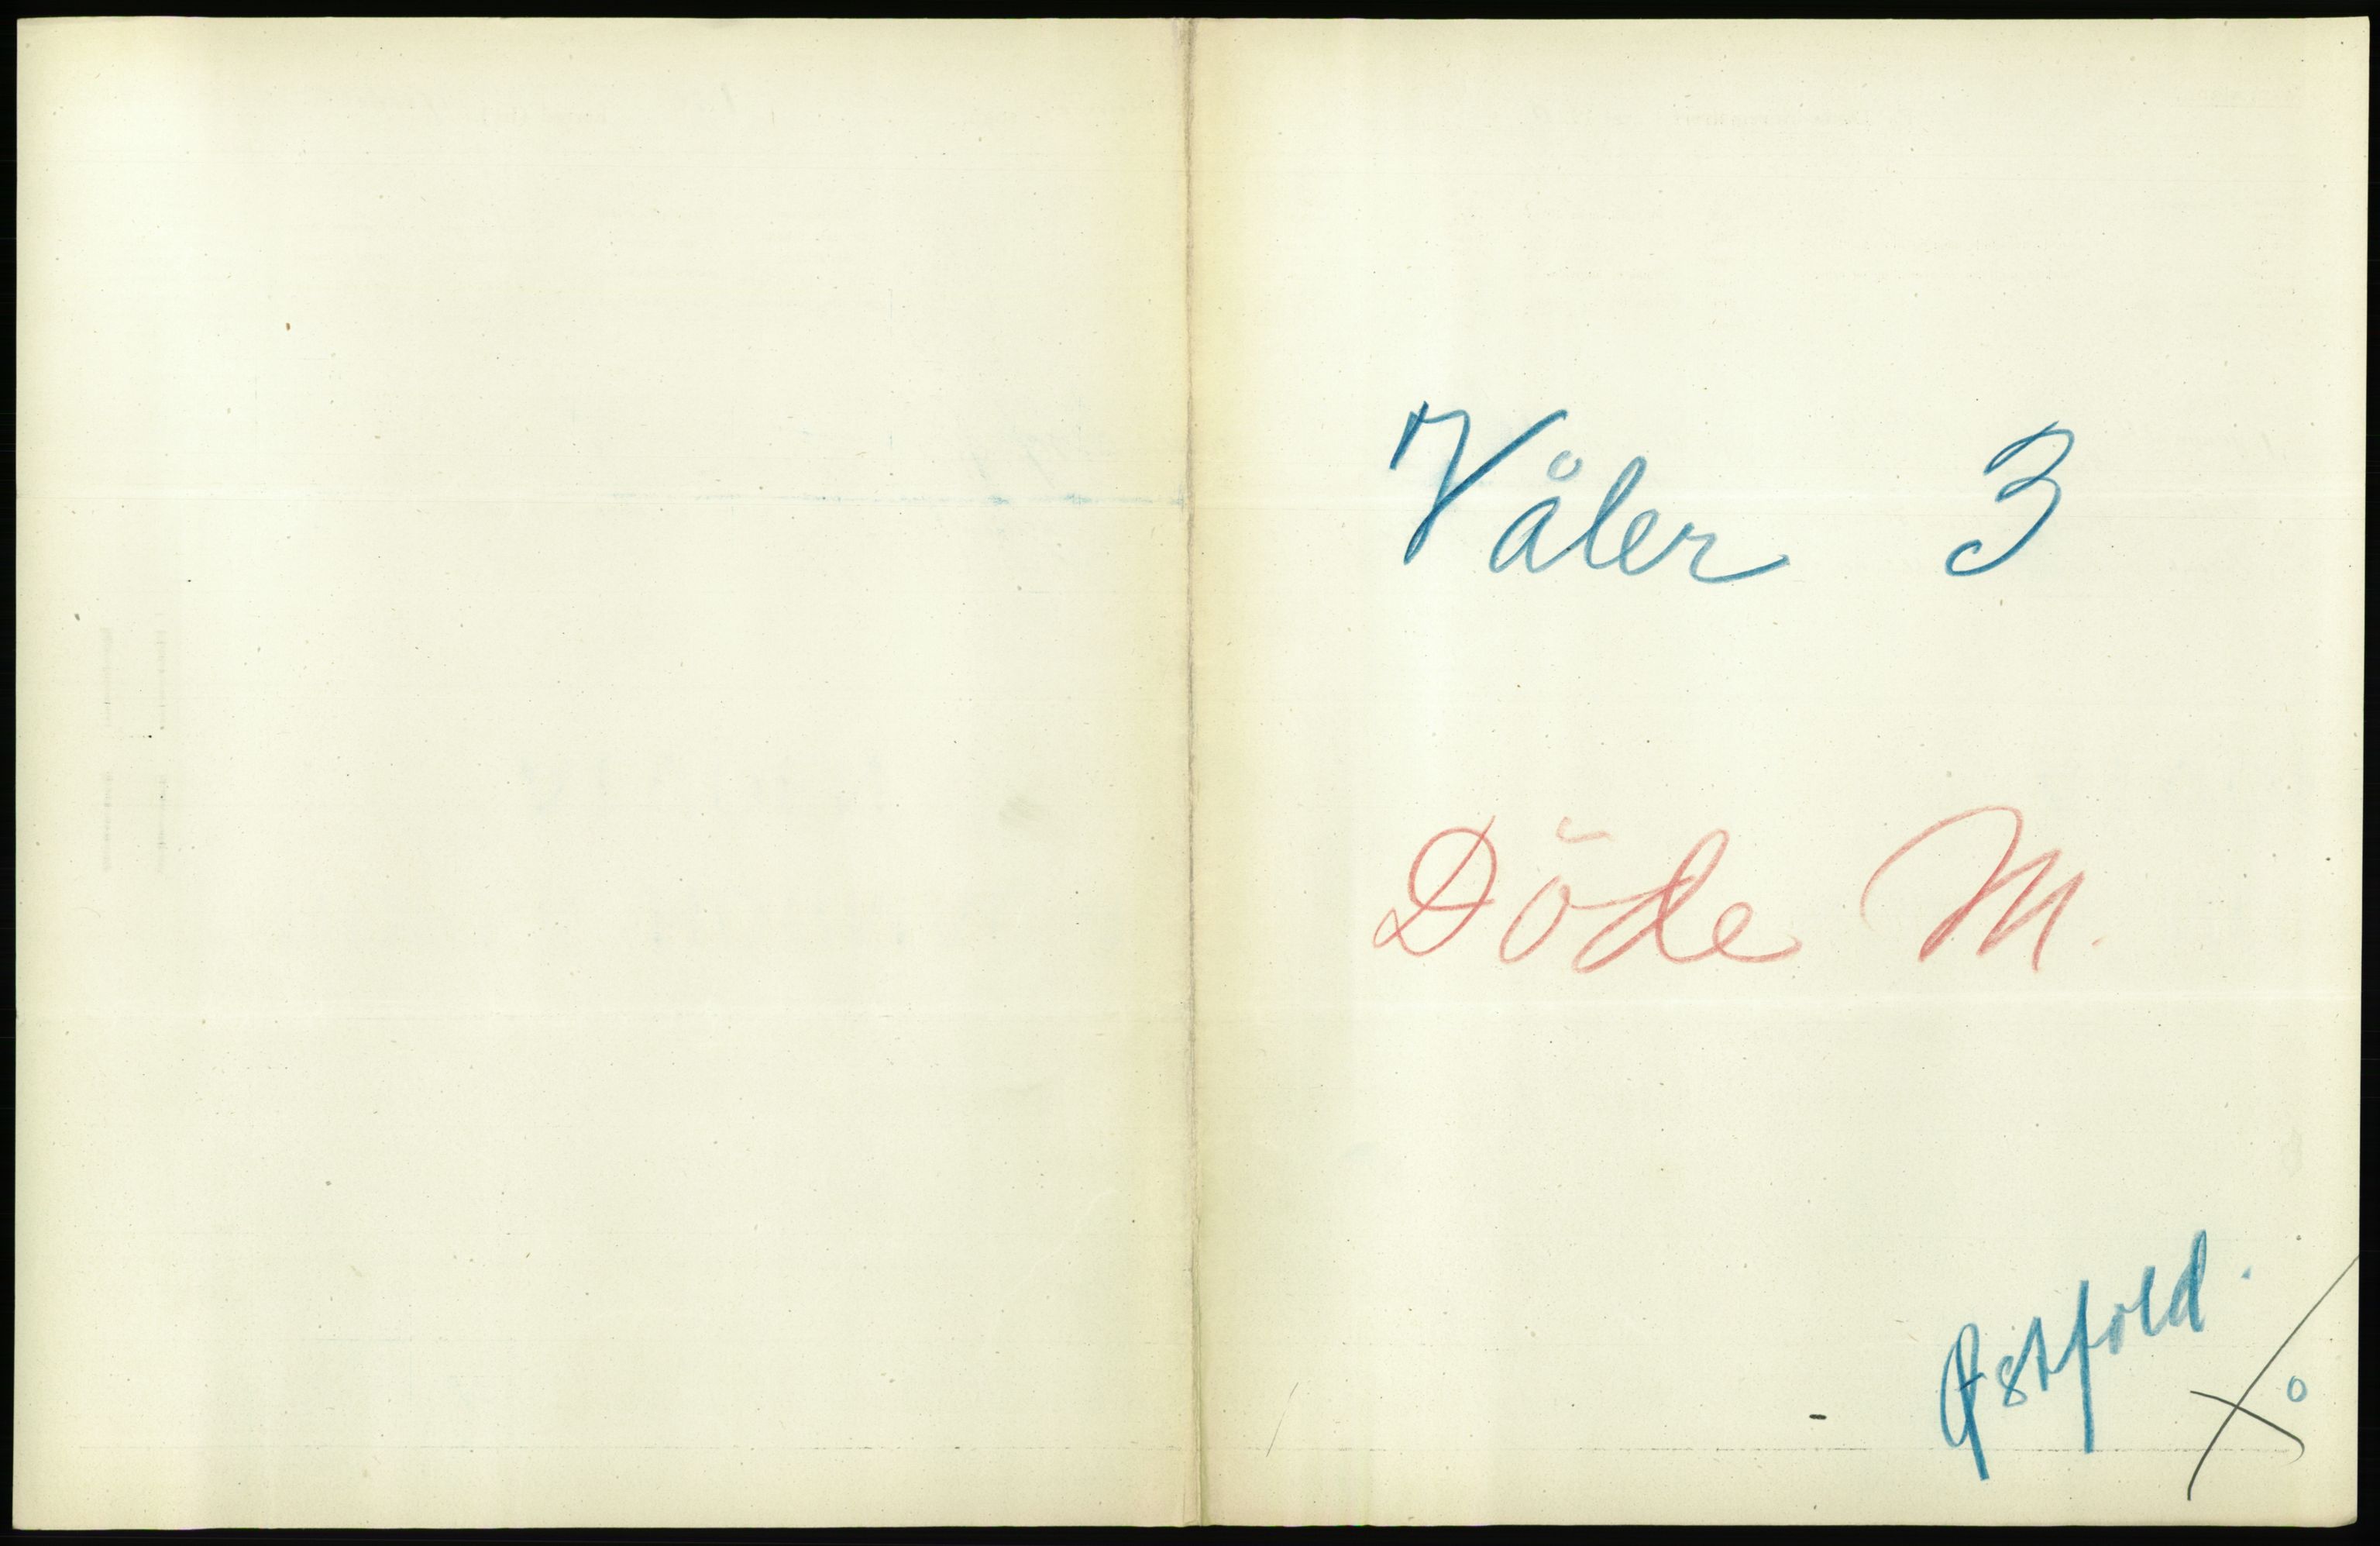 Våler 3
Döde M.
Østfold.